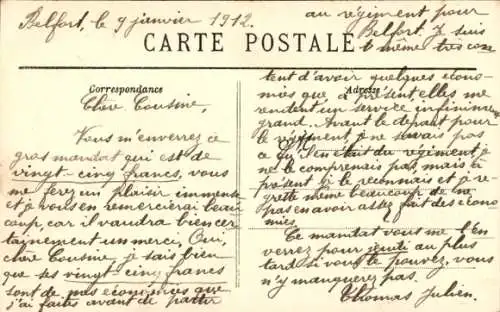 Belfort, le 9 janvier 1912.
CARTE POSTALE
Correspondance
Chère Cousine,
Vous m'enverrez ce
gros mandat qui est de
vingt-cinq francs, vous
me ferez un plaisir immense
et je vous en remercierai beau
coup, car il vaudra bien cer
tainement un merci. Oui,
chère Cousine, je sais bien
que ses vingt-cinq francs
sont de mes économies que
j'ai faites avant de partir
au régiment pour
Belfort. Je suis
même très con
Adresse
tent d'avoir quelques écono-
mies que, à présent elles me
rendent un service infiniment
grand. Avant le départ pour
le régiment, je ne savais pas
ce qu'il en était du régiment, je
ne le comprenais pas, mais à
présent je le reconnais et je re
grette même beaucoup de ne
pas en avoir assez fait des écono
mies.
Ce mandat vous me l'en
verrez pour jeudi au plus
tard si vous le pouvez, vous
n'y manquerez pas.
Thomas Julien.